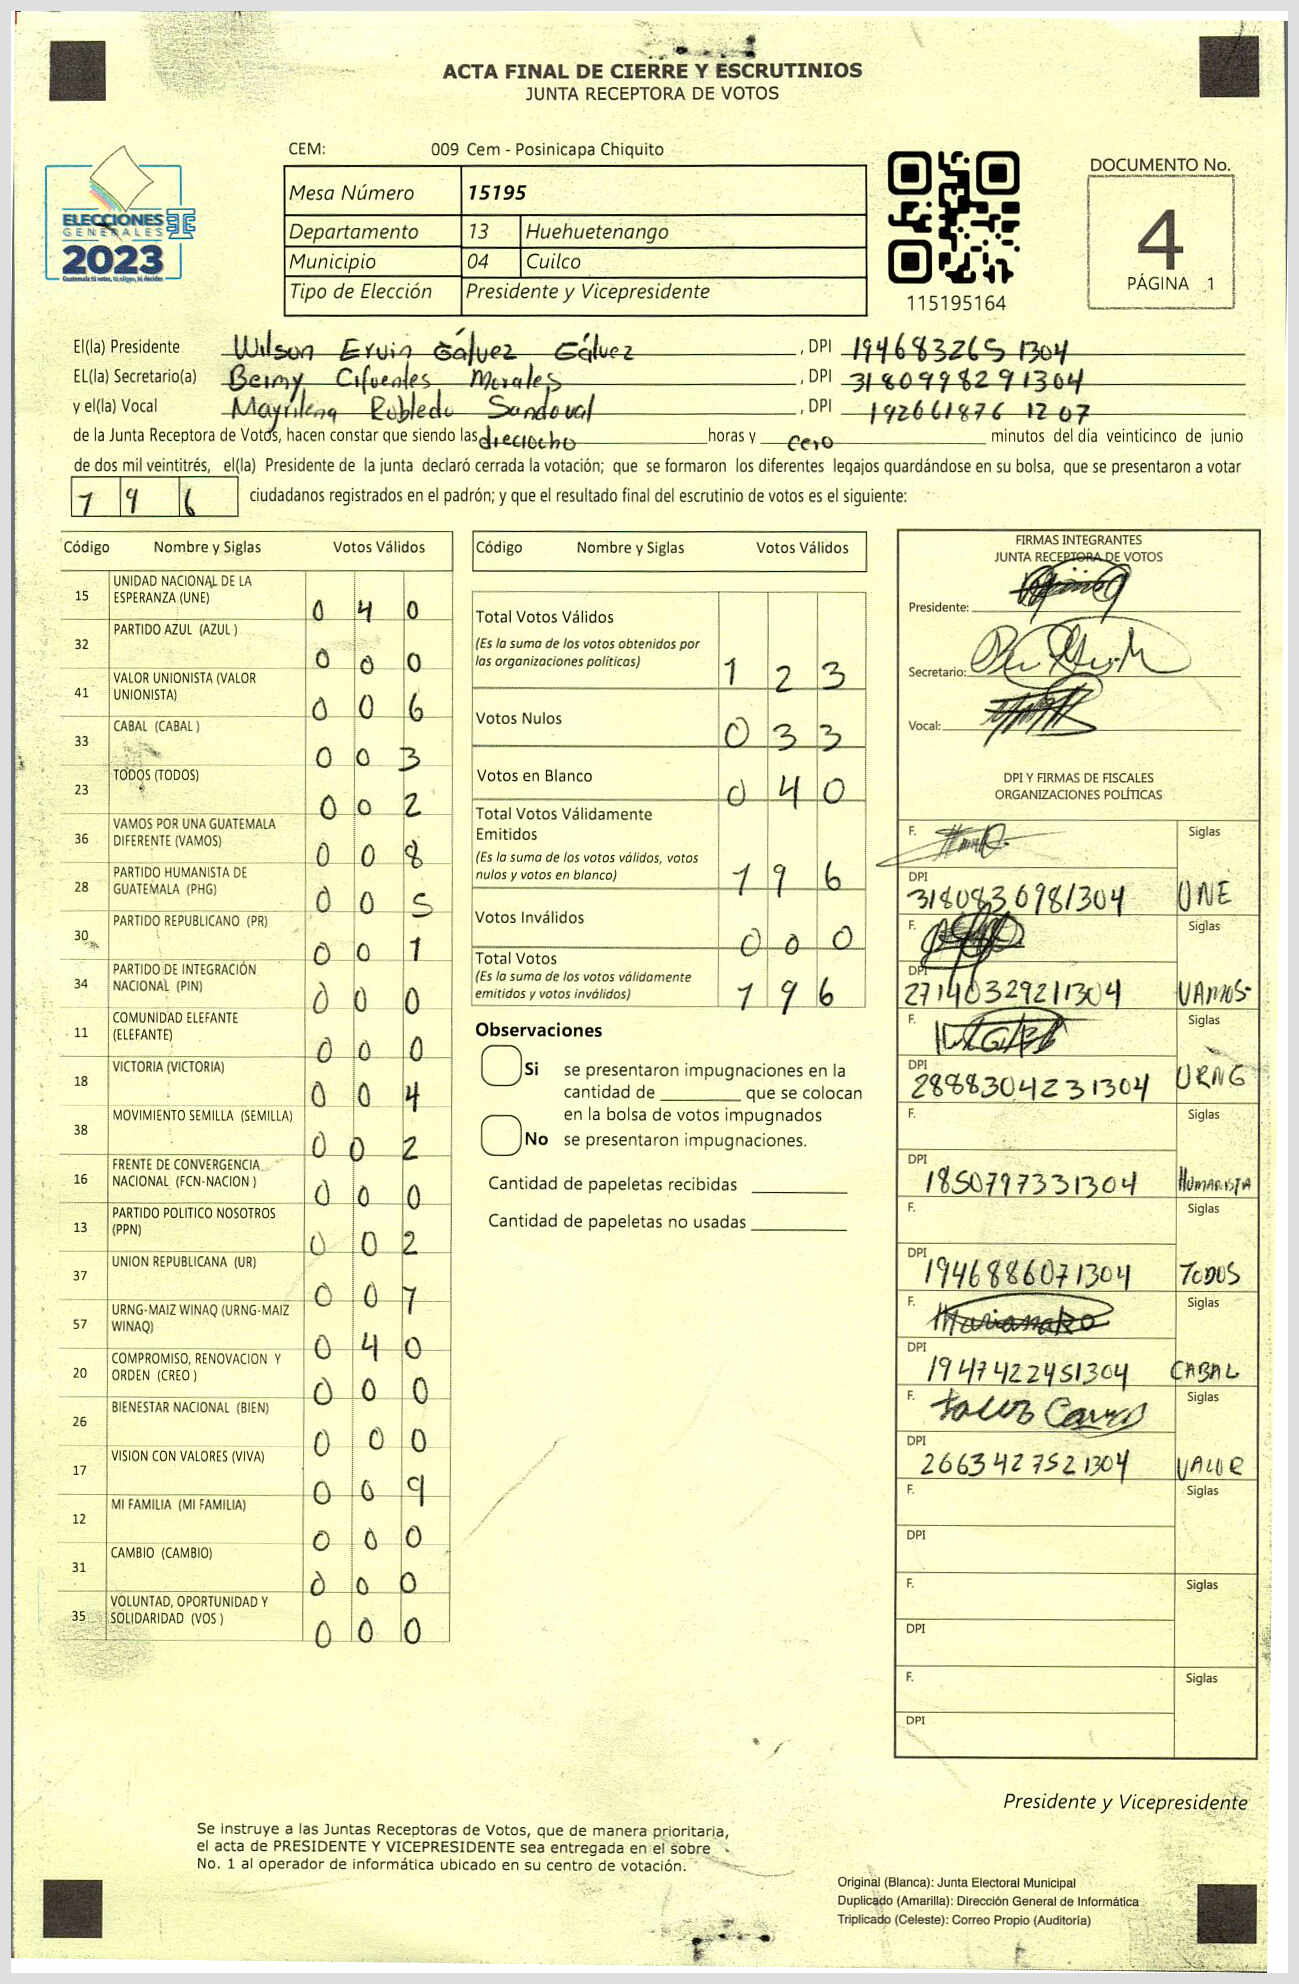 ACTA FINAL DE CIERRE Y ESCRUTINIOS
JUNTA RECEPTORA DE VOTOS
CEM: 009 Cem - Posinicapa Chiquito
Mesa Número 15195
Departamento 13 Huehuetenango
Municipio 04 Cuilco
Tipo de Elección Presidente y Vicepresidente
ELECCIONES
GENERALES
2023
Guatemala tú votas, tú eliges, tú decides
115195164
DOCUMENTO No.
4
PÁGINA 1
El(la) Presidente Wilson Ervin Gálvez Gálvez , DPI 194683265 1304
EL(la) Secretario(a) Beimy Cifuentes Morales , DPI 3180998291304
y el(la) Vocal Mayrilena Robledo Sandoval , DPI 192661876 1207
de la Junta Receptora de Votos, hacen constar que siendo las dieciocho horas y cero minutos del día veinticinco de junio
de dos mil veintitrés, el(la) Presidente de la junta declaró cerrada la votación; que se formaron los diferentes legajos quardándose en su bolsa, que se presentaron a votar
196 ciudadanos registrados en el padrón; y que el resultado final del escrutinio de votos es el siguiente:
Código Nombre y Siglas Votos Válidos
15 UNIDAD NACIONAL DE LA ESPERANZA (UNE) 0 4 0
32 PARTIDO AZUL (AZUL ) 0 0 0
41 VALOR UNIONISTA (VALOR UNIONISTA) 0 0 6
33 CABAL (CABAL ) 0 0 3
23 TODOS (TODOS) 0 0 2
36 VAMOS POR UNA GUATEMALA DIFERENTE (VAMOS) 0 0 8
28 PARTIDO HUMANISTA DE GUATEMALA (PHG) 0 0 5
30 PARTIDO REPUBLICANO (PR) 0 0 1
34 PARTIDO DE INTEGRACIÓN NACIONAL (PIN) 0 0 0
11 COMUNIDAD ELEFANTE (ELEFANTE) 0 0 0
18 VICTORIA (VICTORIA) 0 0 4
38 MOVIMIENTO SEMILLA (SEMILLA) 0 0 2
16 FRENTE DE CONVERGENCIA NACIONAL (FCN-NACION ) 0 0 0
13 PARTIDO POLITICO NOSOTROS (PPN) 0 0 2
37 UNION REPUBLICANA (UR) 0 0 7
57 URNG-MAIZ WINAQ (URNG-MAIZ WINAQ) 0 4 0
20 COMPROMISO, RENOVACION Y ORDEN (CREO ) 0 0 0
26 BIENESTAR NACIONAL (BIEN) 0 0 0
17 VISION CON VALORES (VIVA) 0 0 9
12 MI FAMILIA (MI FAMILIA) 0 0 0
31 CAMBIO (CAMBIO) 0 0 0
35 VOLUNTAD, OPORTUNIDAD Y SOLIDARIDAD (VOS ) 0 0 0
Código Nombre y Siglas Votos Válidos
Total Votos Válidos
(Es la suma de los votos obtenidos por
las organizaciones políticas) 1 2 3
Votos Nulos 0 3 3
Votos en Blanco 0 4 0
Total Votos Válidamente
Emitidos
(Es la suma de los votos válidos, votos
nulos y votos en blanco) 1 9 6
Votos Inválidos 0 0 0
Total Votos
(Es la suma de los votos válidamente
emitidos y votos inválidos) 1 9 6
Observaciones
Si se presentaron impugnaciones en la
cantidad de ________ que se colocan
en la bolsa de votos impugnados
No se presentaron impugnaciones.
Cantidad de papeletas recibidas
Cantidad de papeletas no usadas
FIRMAS INTEGRANTES
JUNTA RECEPTORA DE VOTOS
Presidente:
Secretario:
Vocal:
DPI Y FIRMAS DE FISCALES
ORGANIZACIONES POLÍTICAS
F. Siglas
DPI 3180830981304 UNE
F. Siglas
DPI 2714032921304 VAMOS
F. Siglas
DPI 2888304231304 URNG
F. Siglas
DPI 1850797331304 HUMANISTA
F. Siglas
DPI 1946886071304 TODOS
F. Siglas
DPI 1947422451304 CABAL
F. Siglas
DPI 2663427521304 VALOR
F. Siglas
DPI
F. Siglas
DPI
F. Siglas
DPI
Presidente y Vicepresidente
Se instruye a las Juntas Receptoras de Votos, que de manera prioritaria,
el acta de PRESIDENTE Y VICEPRESIDENTE sea entregada en el sobre
No. 1 al operador de informática ubicado en su centro de votación.
Original (Blanca): Junta Electoral Municipal
Duplicado (Amarilla): Dirección General de Informática
Triplicado (Celeste): Correo Propio (Auditoría)